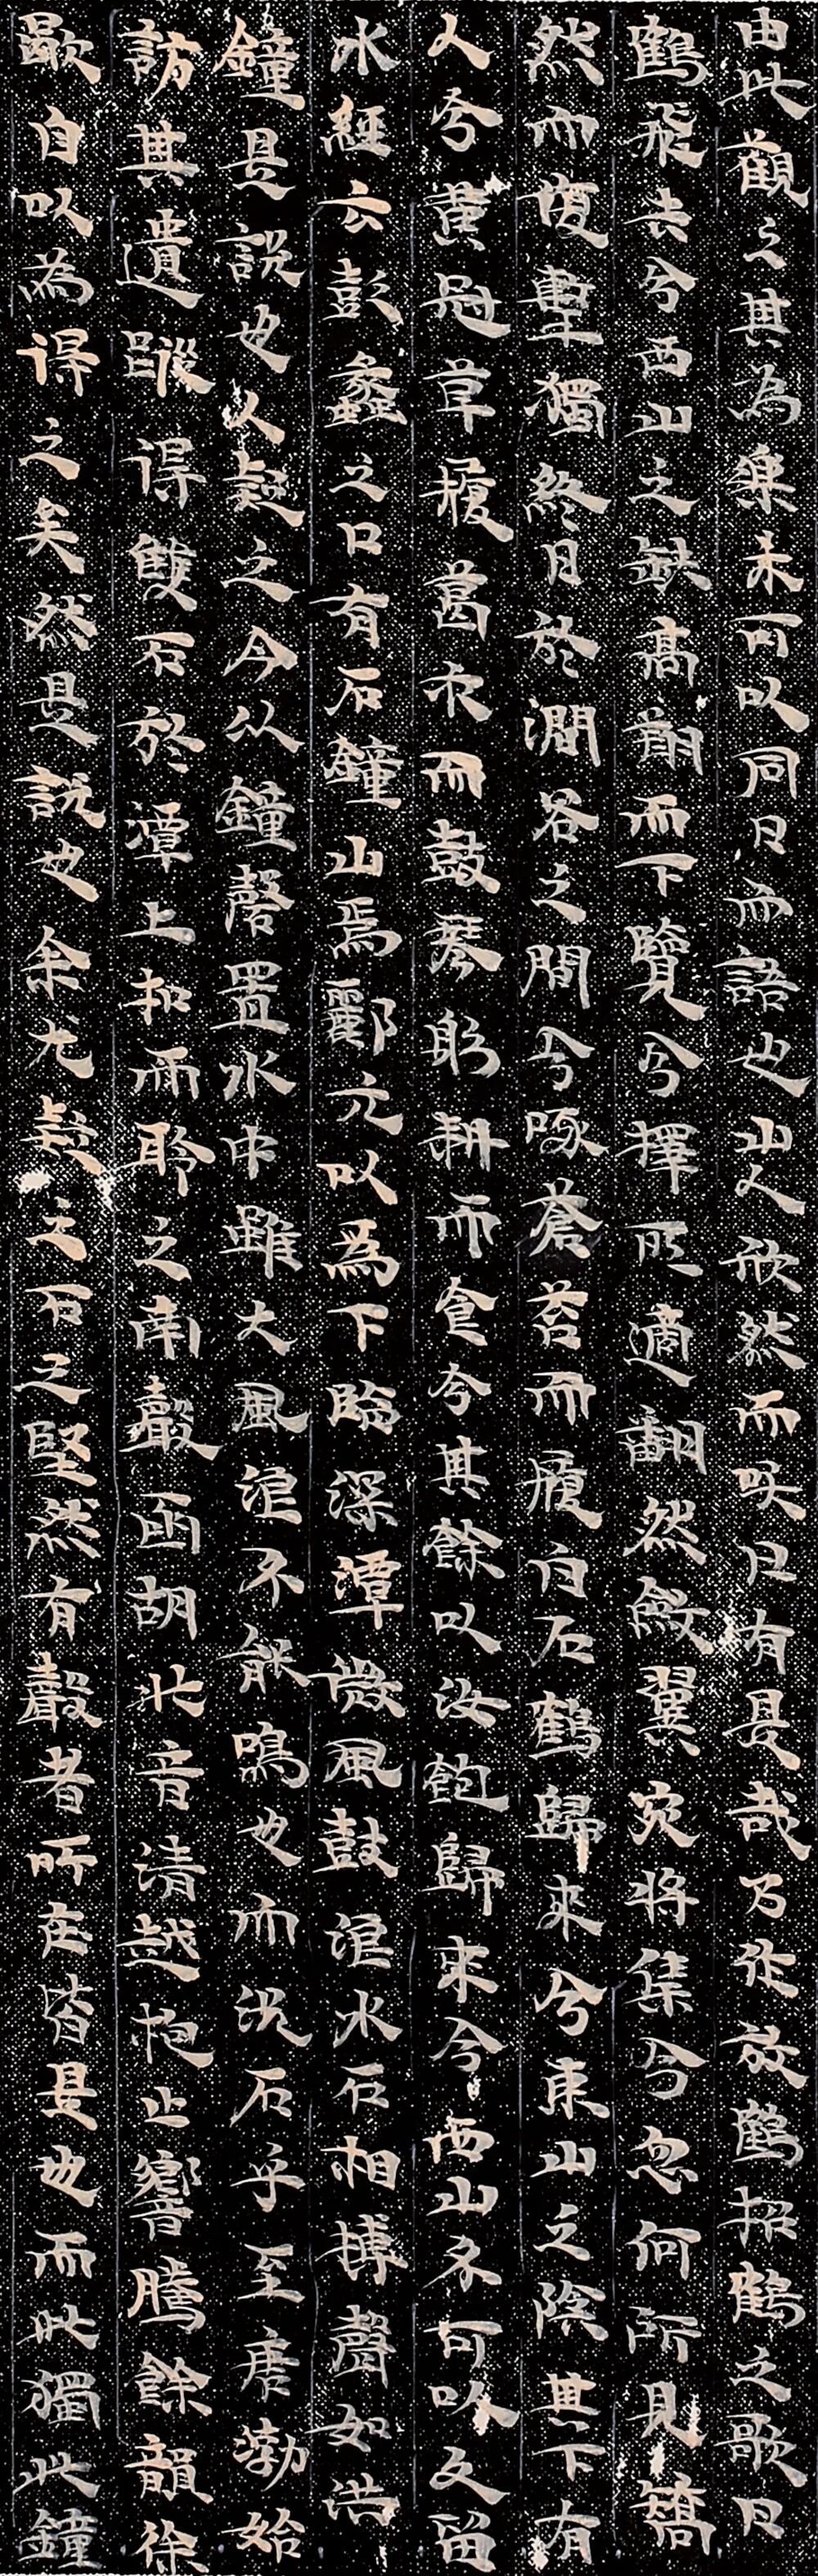 由此觀之其為樂未可以同日而語也山人欣然而咲曰有是哉乃作放鶴招鶴之歌曰
鶴飛去兮西山之缺高翔而下覽兮擇所適翻然斂翼宛將集兮忽何所見矯
然而復擊獨終日於澗谷之間兮啄蒼苔而履白石鶴歸來兮東山之陰其下有
人兮黃冠草履葛衣而鼓琴躬耕而食兮其餘以汝飽歸來兮西山不可以久留
水經云彭蠡之口有石鐘山焉酈元以為下臨深潭微風鼓浪水石相搏聲如洪
鐘是說也人疑之今以鐘磬置水中雖大風浪不能鳴也而況石乎至唐渤始
訪其遺蹤得雙石於潭上扣而聆之南聲函胡北音清越枹止響騰餘韻徐
歇自以為得之矣然是說也余尤疑之石之堅然有聲者所在皆是也而此獨此鐘